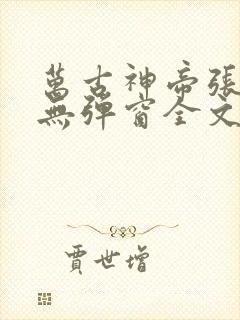 萬古神帝張
無彈窗全文
賈世增